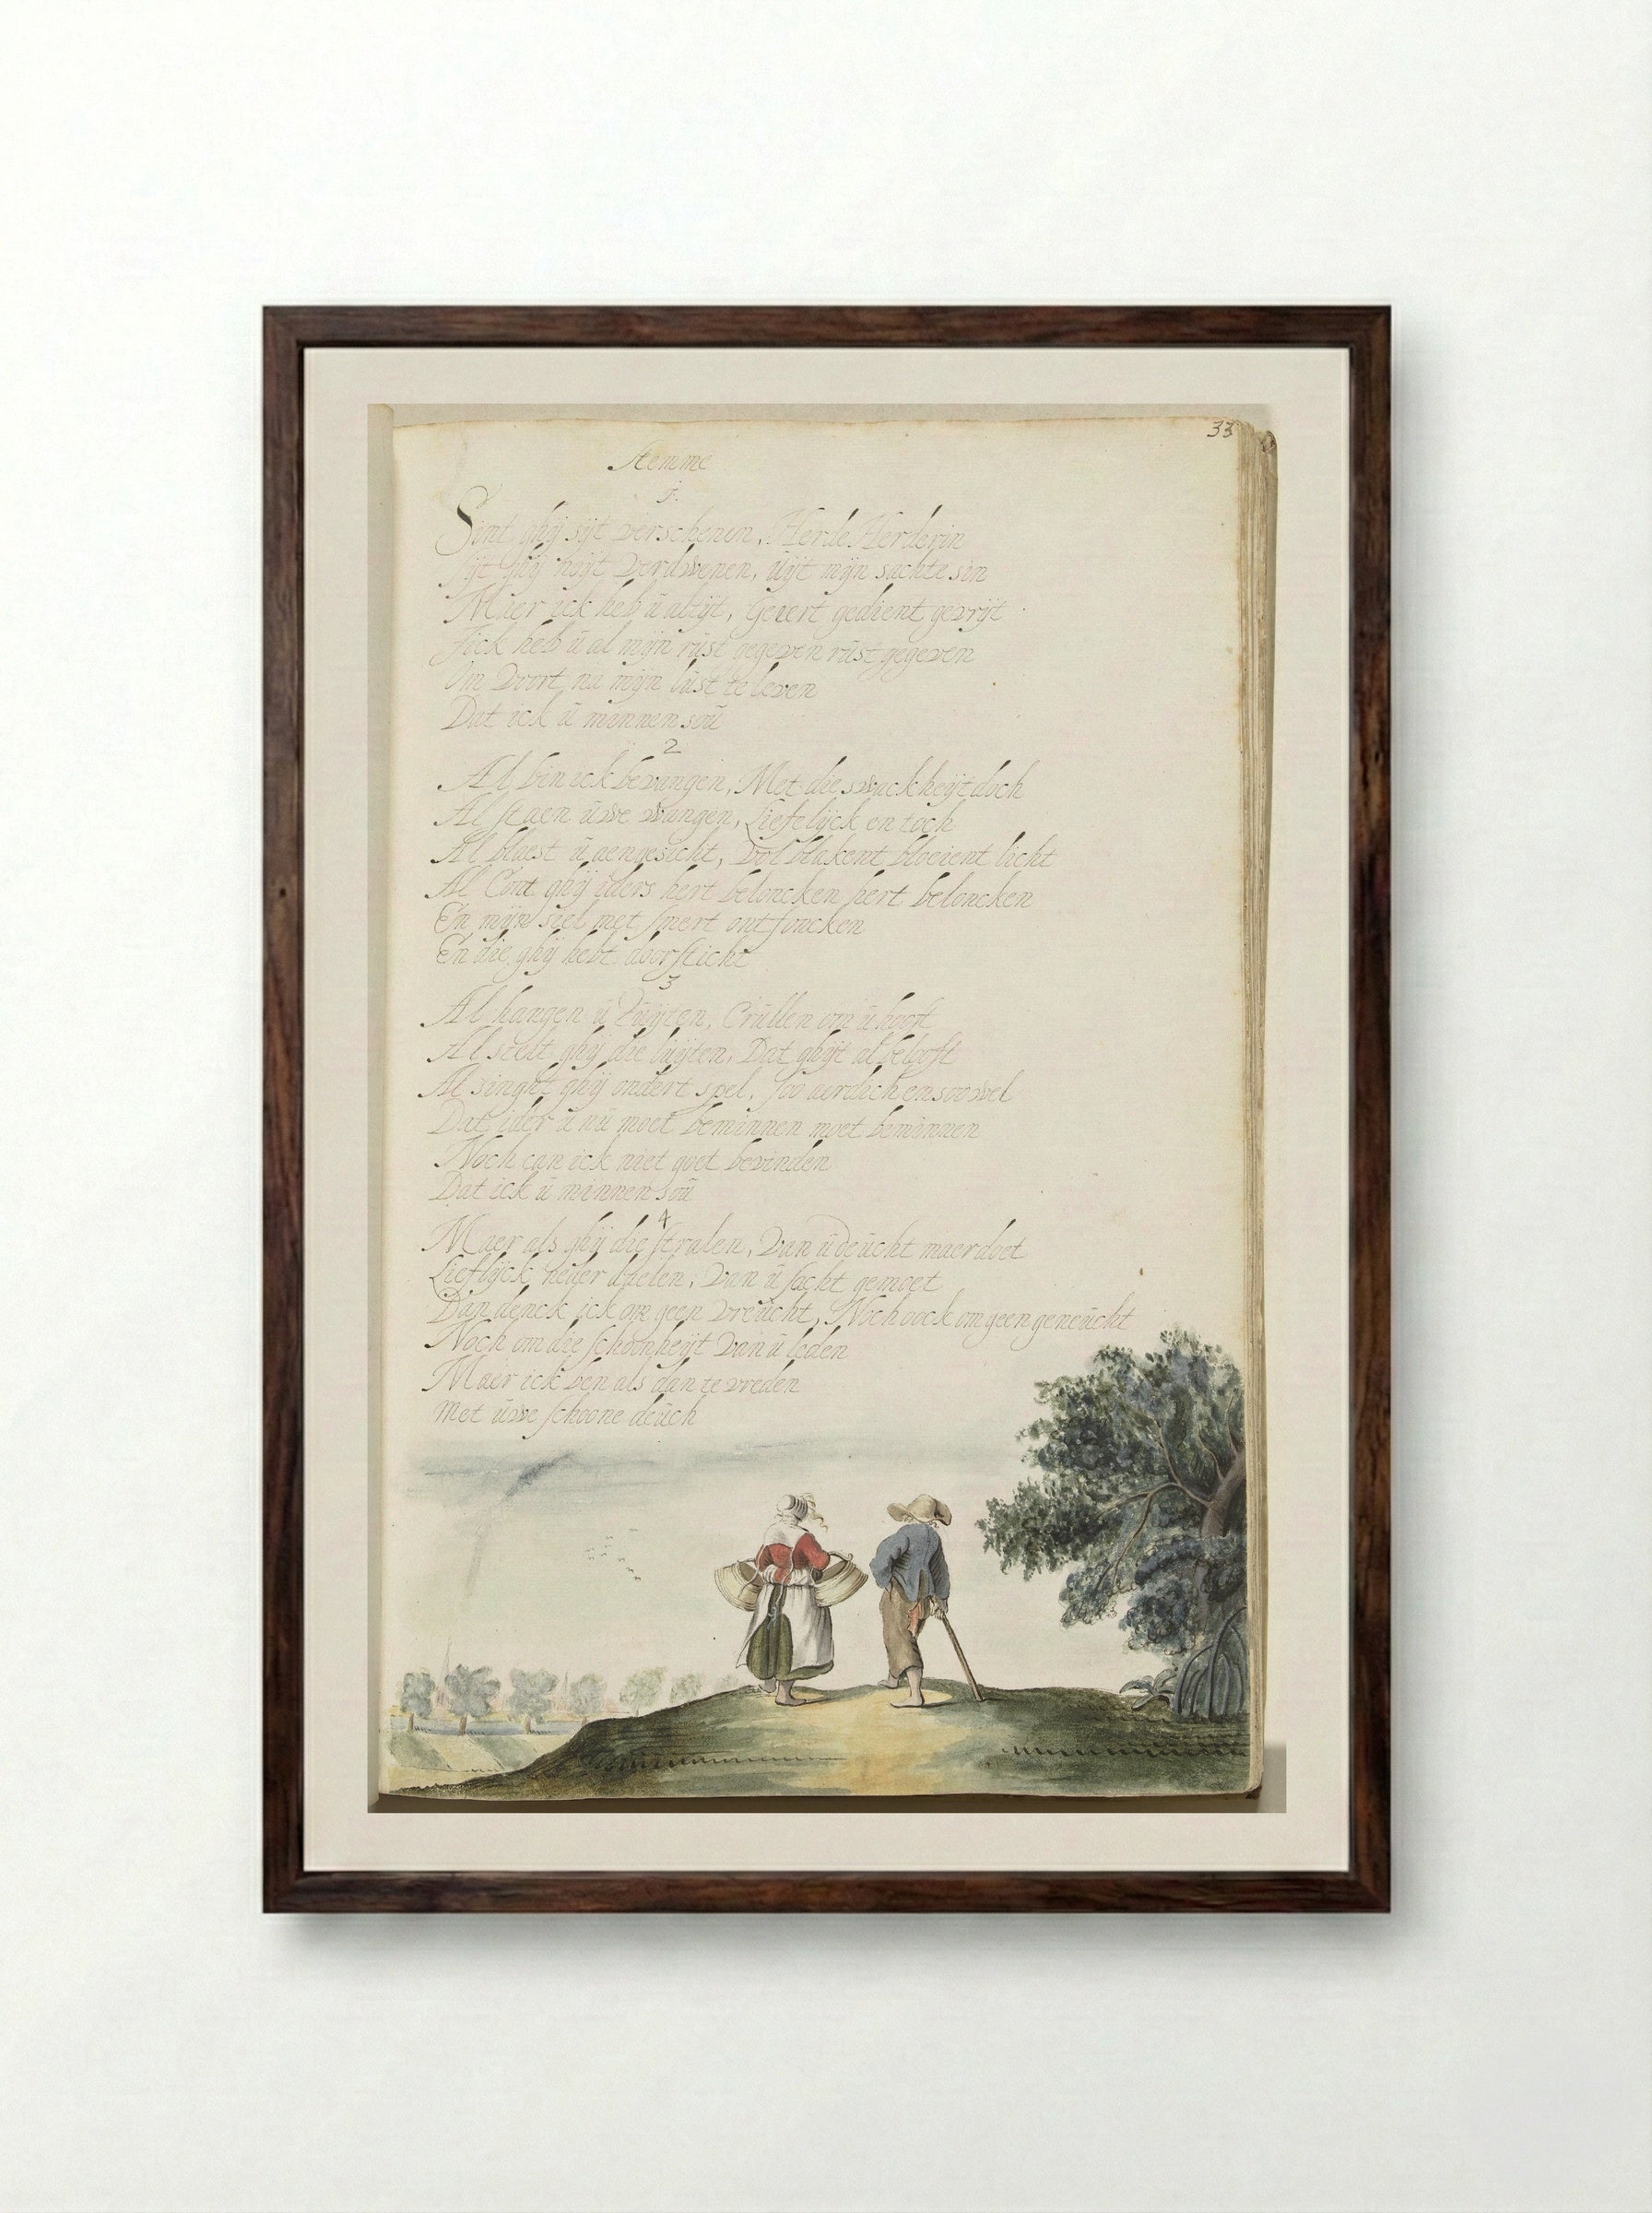 33
Stemme
1.
Sint ghij sijt verschenen, Herde Herderin
ghij heijt Verdwenen, uijt mijn sachte sin
Maer ick heb ū altijt, Geeert gedient gevrijt
Jick heb ū al mijn rūst gegeven rūst gegeven
Om Voort na mijn lūst te leven
Dat ick ū minnen soū
2
Al ben ick bevangen, Met die swackheijt doch
Al staen ūwe wangen, Liefelijck en toch
Al blaest ū aengesicht, Vol blakent bloeient licht
Al Cont ghij iders hert beloncken hert beloncken
En mijn siel met smert ontfoncken
En die ghij hebt doorsticht
3
Al hangen ū Tūijten, Crūllen om ū hooft
Al stelt ghij die lūijten, Dat ghijt al belooft
Al singht ghij ondert spel, soo aerdich en soo wel
Dat ider ū nū moet beminnen moet beminnen
Noch can ick niet goet bevinden
Dat ick ū minnen soū
4
Maer als ghij die stralen, Van ū deūcht maer doet
Lieflijck neder daelen, Van ū sacht gemoet
Dan denck ick om geen vreūcht, Noch oock om geen geneūcht
Noch om die schoonheijt Van ū leden
Maer ick ben als dan te vreden
Met ūwe schoone deūch